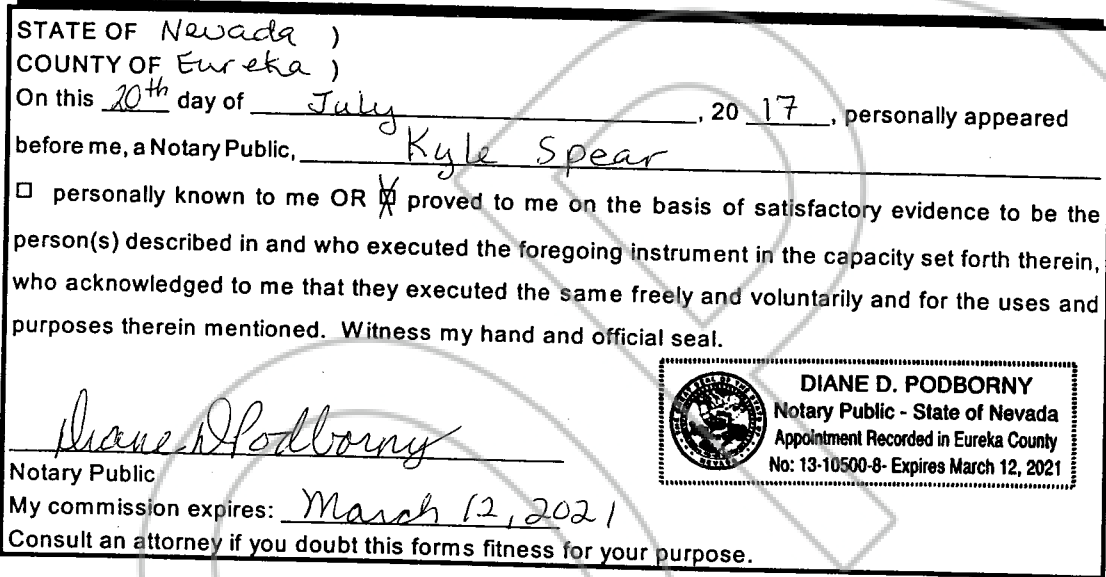 STATE OF Nevada )
COUNTY OF Eureka )
On this 20th day of July, 20 17, personally appeared
before me, a Notary Public, Kyle Spear
☐ personally known to me OR ☒ proved to me on the basis of satisfactory evidence to be the
person(s) described in and who executed the foregoing instrument in the capacity set forth therein,
who acknowledged to me that they executed the same freely and voluntarily and for the uses and
purposes therein mentioned. Witness my hand and official seal.
Diane D Podborny
Notary Public
My commission expires: March 12, 2021
Consult an attorney if you doubt this forms fitness for your purpose.
DIANE D. PODBORNY
Notary Public - State of Nevada
Appointment Recorded in Eureka County
No: 13-10500-8- Expires March 12, 2021